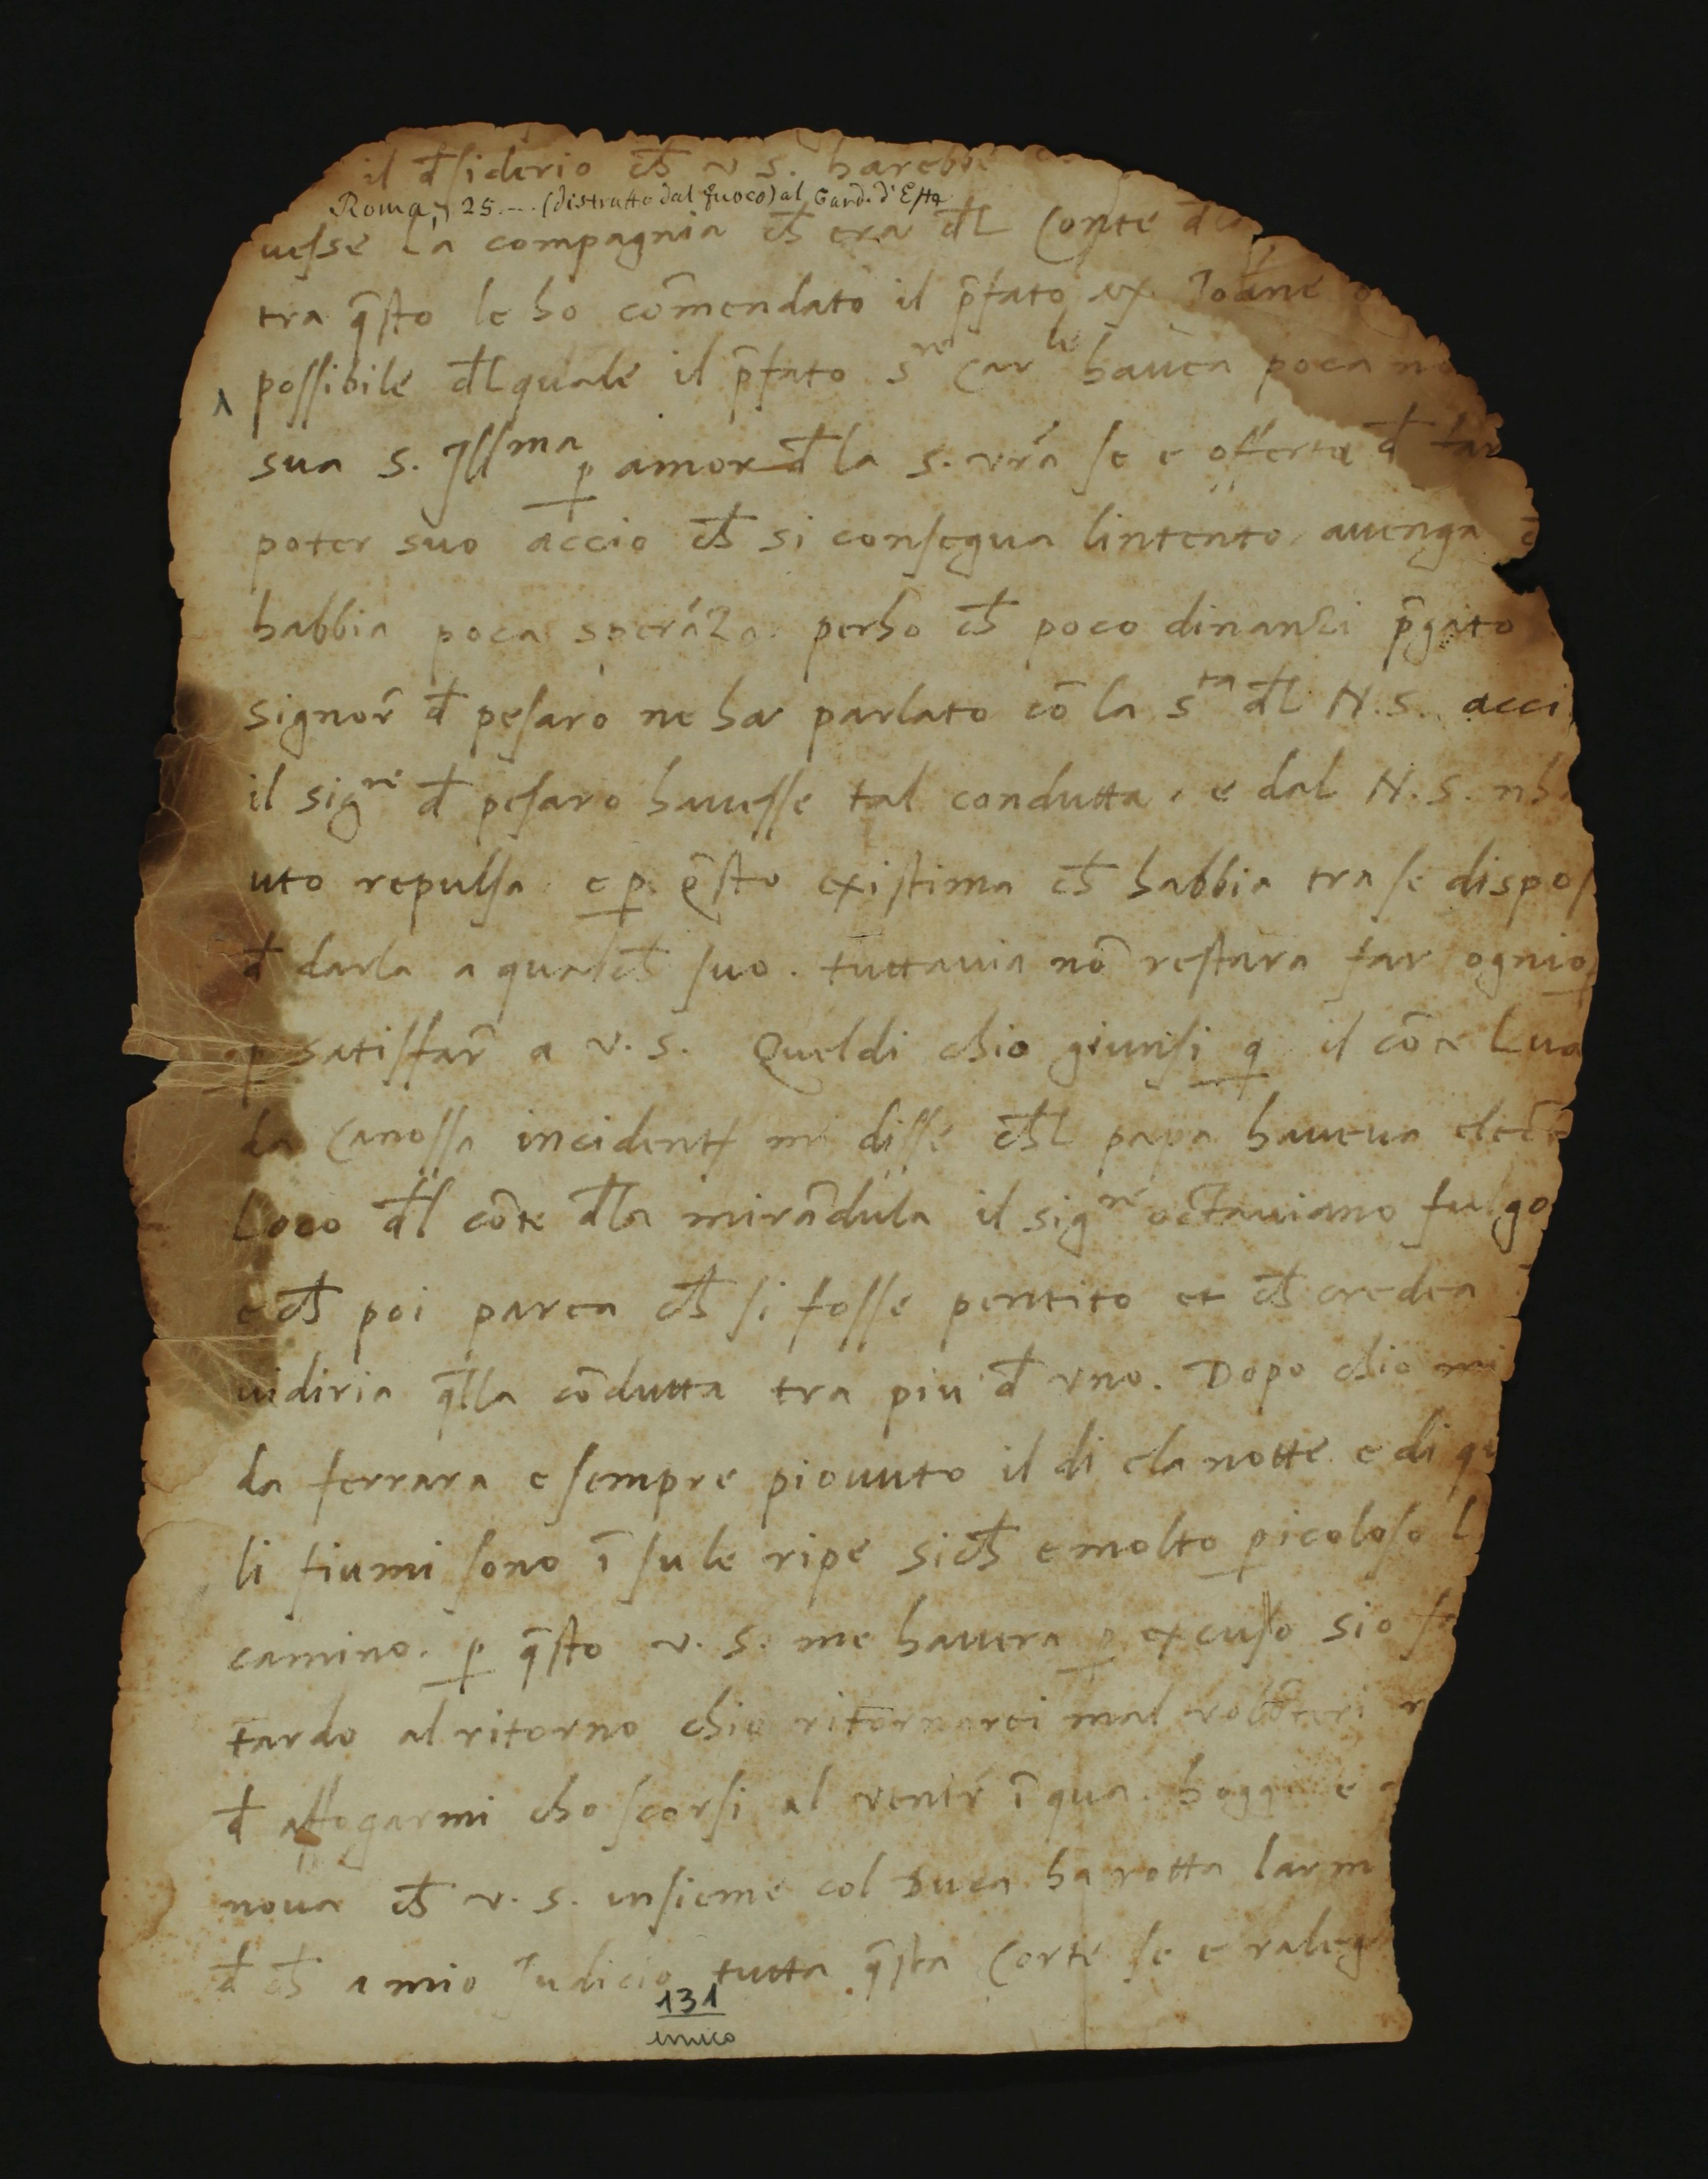 il d̄siderio ch̄ v s. harebbe
Roma, 25 ... (distrutto dal fuoco) al Card. d'Este
uesse la compagnia ch̄ era d̄l Conte d̄la
tra q̄sto le ho com̄endato il p̄fato Joan̄ne
possibile d̄l quale il p̄fato s^re Car^le hauea poca no
sua s. Ill^ma ꝑ amor d̄ la s. vr̄a se e offerta d̄ far
poter suo accio ch̄ si consegua lintento auenga
habbia poca sperāza. perho ch̄ poco dinanzi p̄gato
signor̄ d̄ pesaro ne ha parlato cō la s^ta d̄l N.S. acci
il sig^re d̄ pesaro hauesse tal condutta, e dal N.S. nha
uto repulsa e ꝑ q̄sto existima ch̄ habbia tra se dispos
d̄ darla a qualch̄ suo. tuttauia nō restara far ognio
ꝑ satisfar̄ a v.s. Queldi chio giunsi q̄ il cōte Lud
da Canossa incident̄ mi disse ch̄l papa haueua elect
Loco d̄l cōte d̄la mirādula il sig^re octauiano fulgo
e ch̄ poi parea ch̄ si fosse pentito et ch̄ credea
uidiria q̄lla cōdutta tra piu d̄ vno. Dopo chio mi
da ferrara e sempre piouuto il di e la notte e di q
li fiumi sono ī su le ripe sich̄ e molto ꝑicoloso l
camino. ꝑ q̄sto v.s. me hauera ꝑ excuso sio
tardo al ritorno chio ritornarei mal volōteri
d̄ affogarmi cho scorsi al venir ī qua. hoggi e
noua ch̄ v.s. insieme col Duca ha rotta larm
d̄ ch̄ a mio Judicio tutta q̄sta Corte se e raleg
131
unico